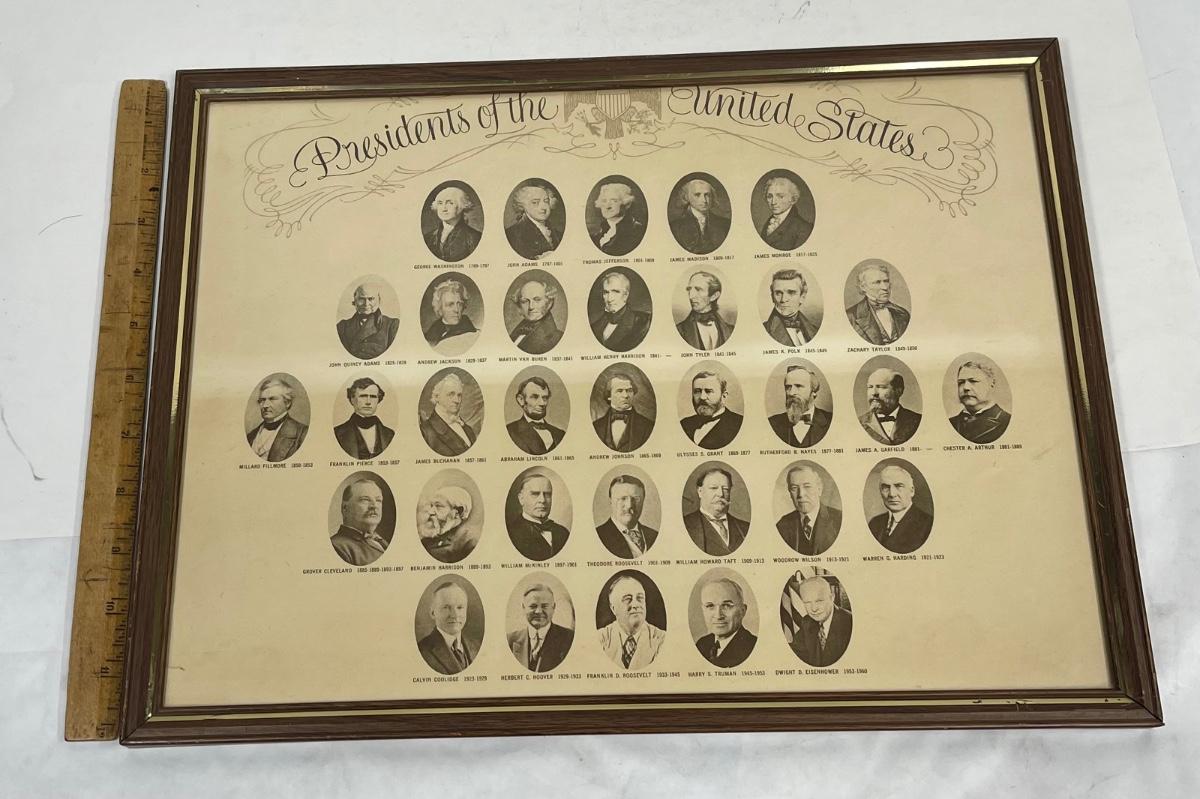 Presidents of the United States
GEORGE WASHINGTON 1789-1797 JOHN ADAMS 1797-1801 THOMAS JEFFERSON 1801-1809 JAMES MADISON 1809-1817 JAMES MONROE 1817-1825
JOHN QUINCY ADAMS 1825-1829 ANDREW JACKSON 1829-1837 MARTIN VAN BUREN 1837-1841 WILLIAM HENRY HARRISON 1841- — JOHN TYLER 1841-1845 JAMES K. POLK 1845-1849 ZACHARY TAYLOR 1849-1850
MILLARD FILLMORE 1850-1853 FRANKLIN PIERCE 1853-1857 JAMES BUCHANAN 1857-1861 ABRAHAM LINCOLN 1861-1865 ANDREW JOHNSON 1865-1869 ULYSSES S. GRANT 1869-1877 RUTHERFORD B. HAYES 1877-1881 JAMES A. GARFIELD 1881- — CHESTER A. ARTHUR 1881-1885
GROVER CLEVELAND 1885-1889-1893-1897 BENJAMIN HARRISON 1889-1893 WILLIAM McKINLEY 1897-1901 THEODORE ROOSEVELT 1901-1909 WILLIAM HOWARD TAFT 1909-1913 WOODROW WILSON 1913-1921 WARREN G. HARDING 1921-1923
CALVIN COOLIDGE 1923-1929 HERBERT C. HOOVER 1929-1933 FRANKLIN D. ROOSEVELT 1933-1945 HARRY S. TRUMAN 1945-1953 DWIGHT D. EISENHOWER 1953-1960